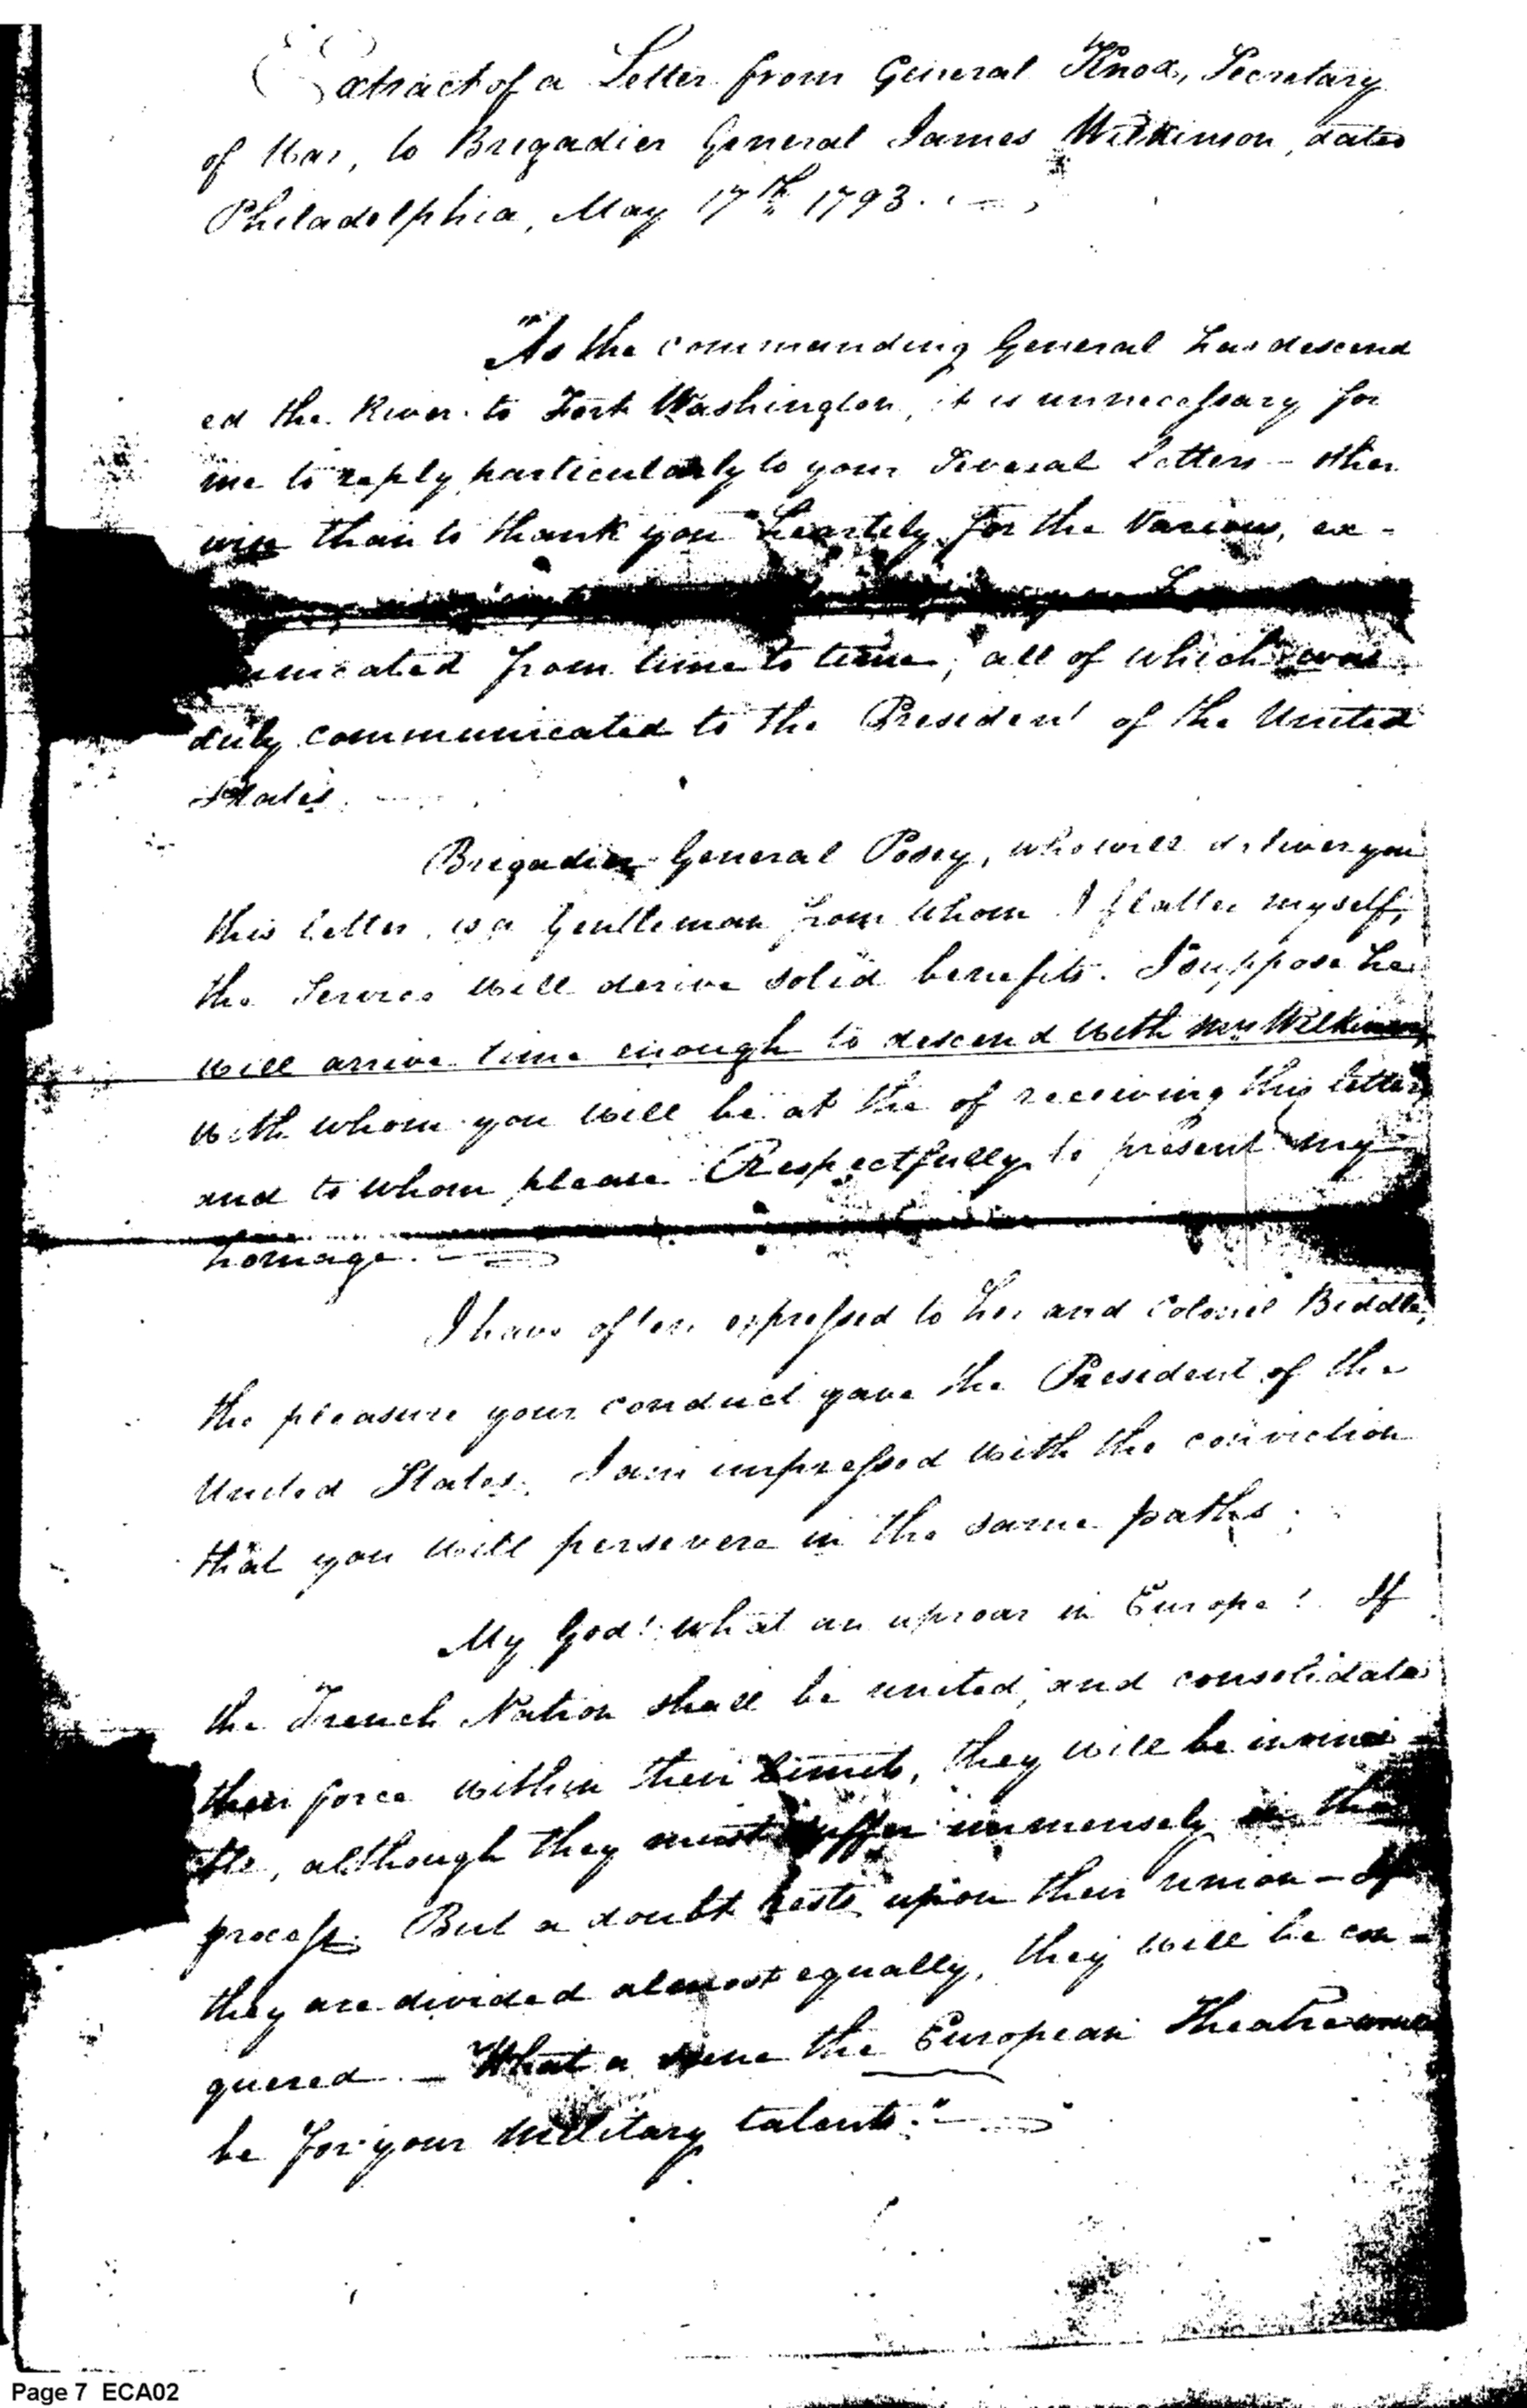 Extract of a Letter from General Knox, Secretary
of War, to Brigadier General James Wilkinson, dated
Philadelphia, May 17th 1793.
"As the commanding General has descend
ed the River to Fort Washington, it is unnecessary for
me to reply particularly to your several letters – other
wise than to thank you heartily for the various, ex-
municated from time to time, all of which was
duly communicated to the President of the United
States.
Brigadier General Posey, who will deliver you
this letter, is a Gentleman from whom I flatter myself,
the Service will derive solid benefits. I suppose he
will arrive time enough to descend with Mrs Wilkinson,
with whom you will be at the of receiving this letter,
and to whom please Respectfully to present my
homage.
I have often expressed to her and Colonel Biddle,
the pleasure your conduct gave the President of the
United States. I am impressed with the conviction
that you will persevere in the same paths.
My God! what an uproar in Europe! If
the French Nation shall be united, and consolidate
their force within their limits, they will be invinci-
ble, although they must suffer immensely in the
process. But a doubt rests upon their union – If
they are divided almost equally, they will be con-
quered. – What a scene the European Theatre would
be for your military talents."
Page 7 ECA02